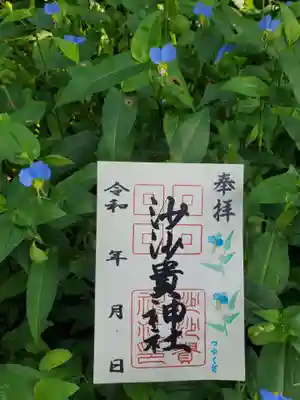 奉拝
沙沙貴神社
令和 年 月 日
つゆくさ